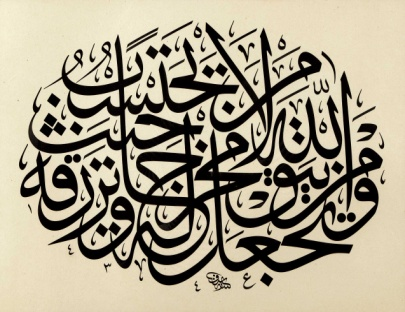 ومن يتق الله يجعل له مخرجا ويرزقه من حيث لا يحتسب